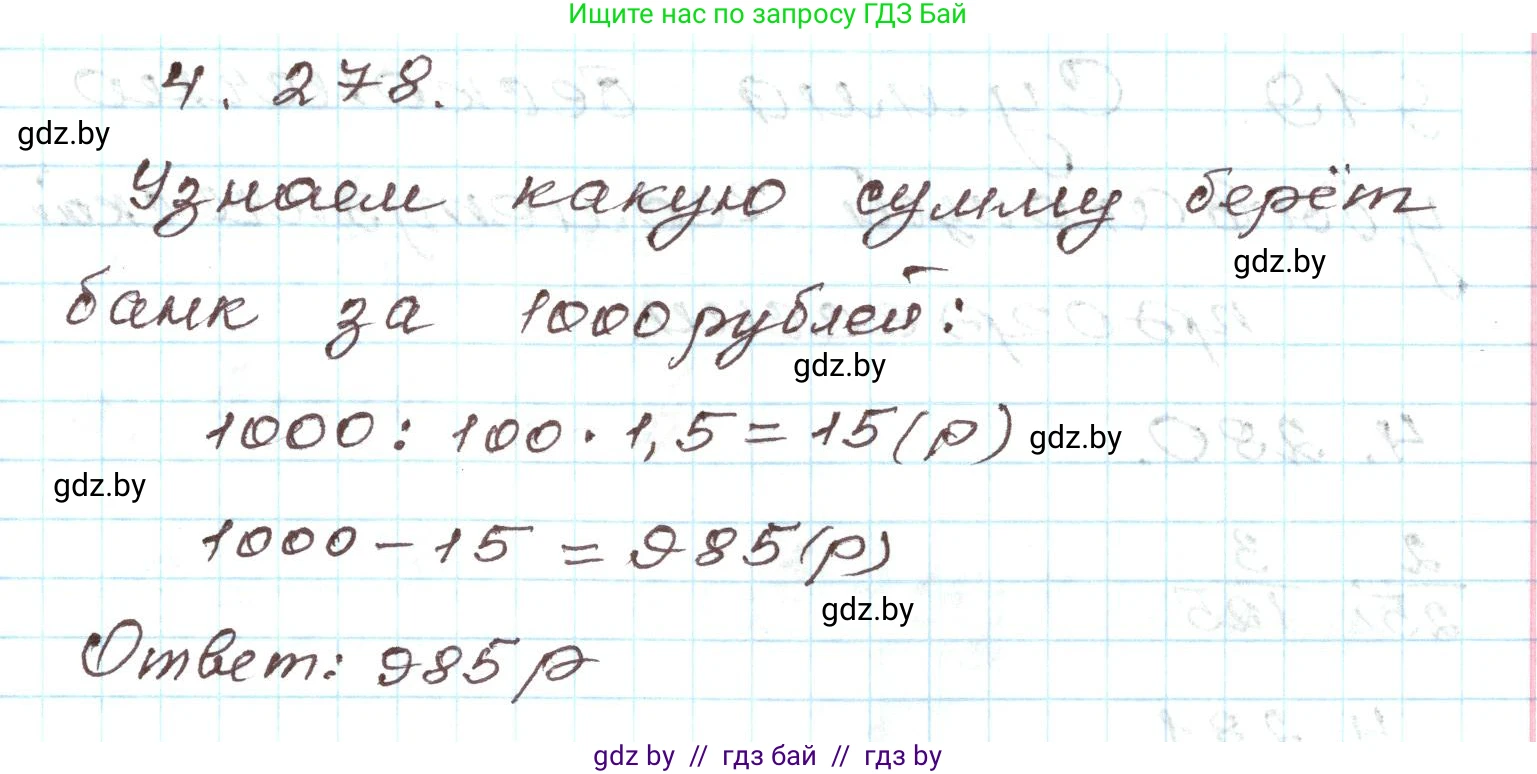 Ищите нас по запросу ГДЗ Бай
4. 278.
gdz.by
Узнаем какую сумму берёт
gdz.by
банк за 1000 рублей:
gdz.by
1000 : 100 · 1,5 = 15 (р) gdz.by
gdz.by
1000 - 15 = 985 (р)
gdz.by
Ответ: 985 р
gdz by // гдз бай // гдз by